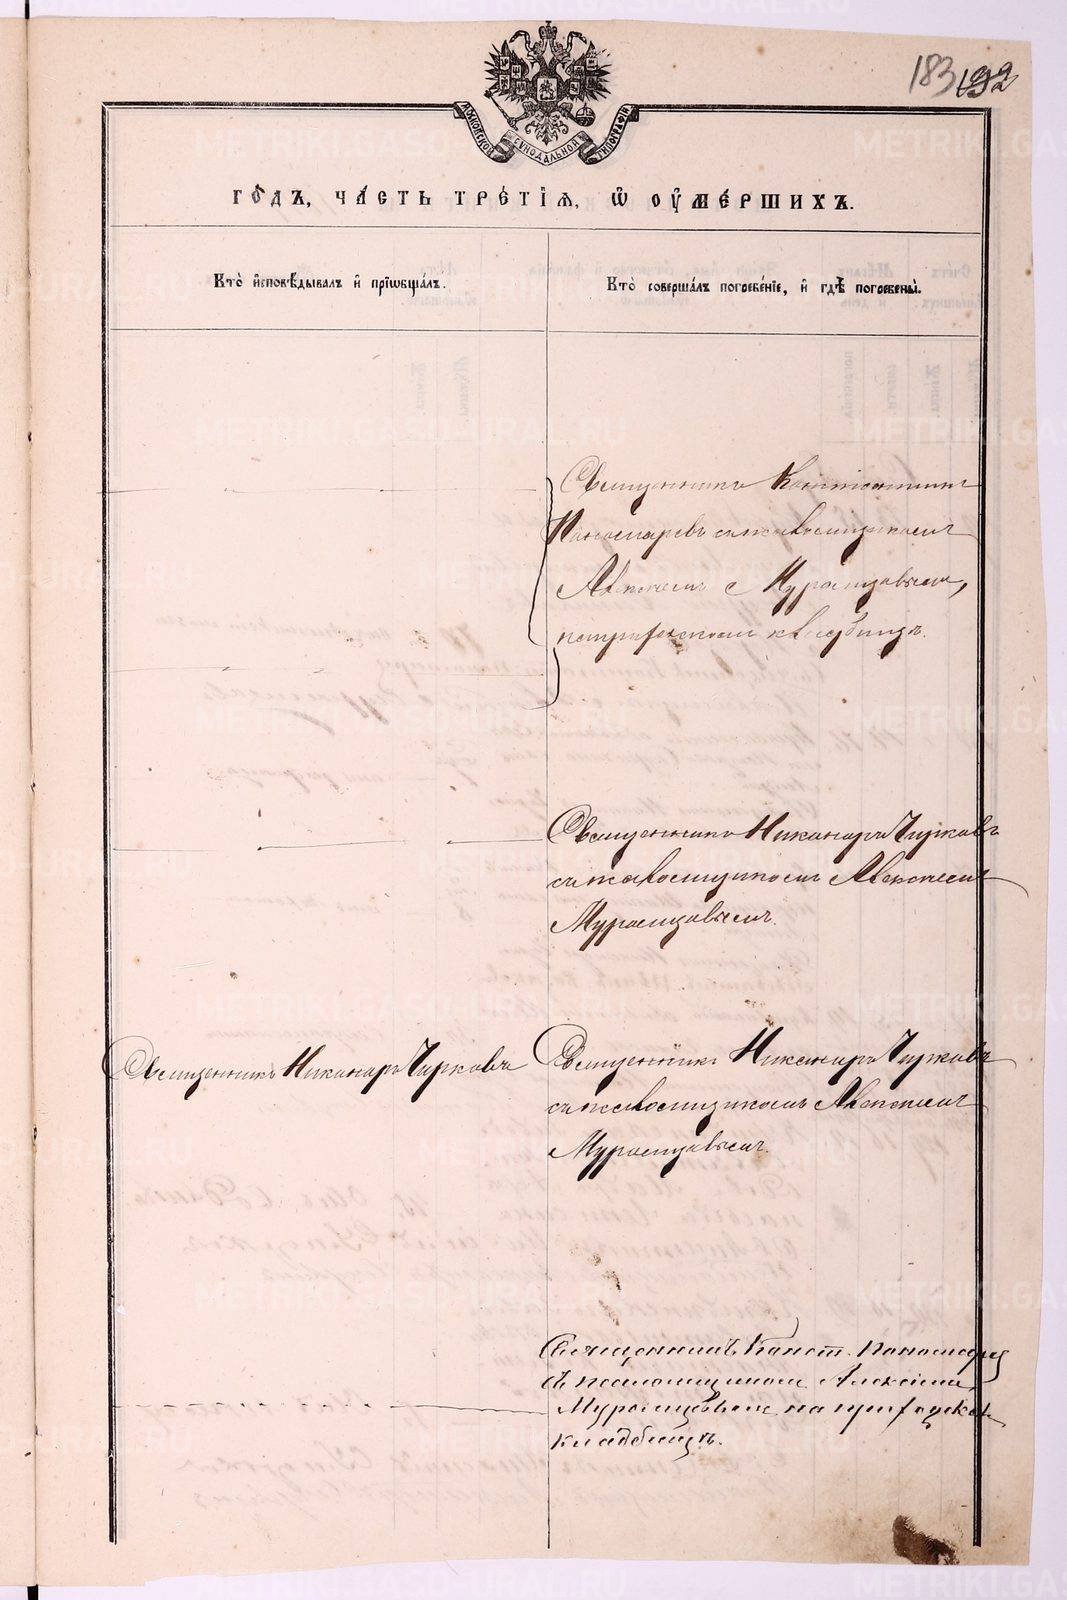 183 192
МОСКОВСКОЙ СѴНОДАЛЬНОЙ ТИПОГРАФІИ
годъ, часть третїѧ, ѡ оумершихъ.
Кто исповѣдывалъ и прїѡбщалъ.
Кто совершалъ погребенїе, и гдѣ погребены.
Священникъ Константинъ
Пономаревъ съ псаломщикомъ
Алексѣемъ Мурамцовымъ,
на приходскомъ кладбищѣ.
Священникъ Никаноръ Чирковъ
съ псаломщикомъ Алексѣемъ
Мурамцовымъ.
Священникъ Никаноръ Чирковъ
Священникъ Никаноръ Чирковъ
съ псаломщикомъ Алексѣемъ
Мурамцовымъ.
Священникъ Конст. Пономаре
съ псаломщикомъ Алексѣемъ
Мурамцовымъ на приходском
кладбищѣ.
METRIKI.GASO-URAL.RU